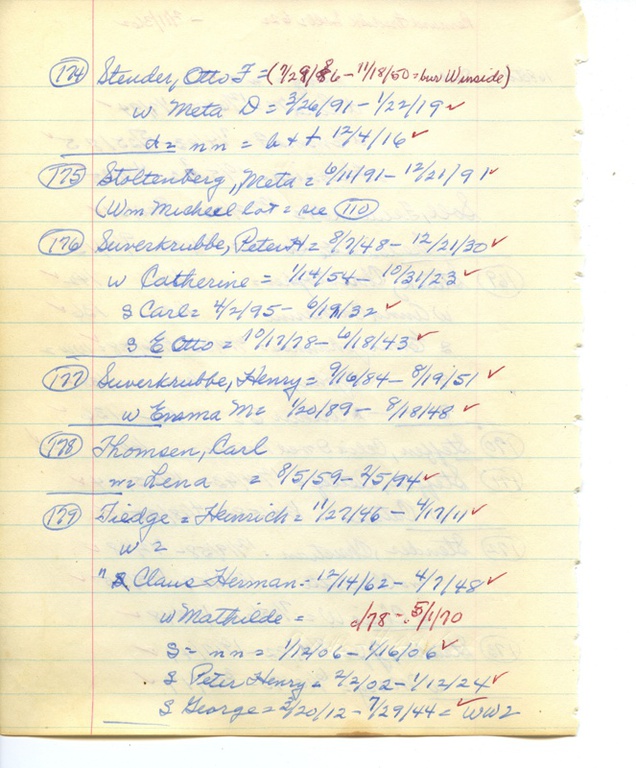 174 Stender, Otto F = (7/29/86 - 11/18/50 = bur Winside)
w Meta D = 3/26/91 - 1/22/19 ✓
d = nn = b + t 12/4/16 ✓
175 Stoltenberg, Meta = 6/11/91 - 12/21/91 ✓
(Wm Micheel lot = see 110
176 Suverkrubbe, Peter H = 8/7/48 - 12/21/30 ✓
w Catherine = 1/14/54 - 10/31/23 ✓
s Carl = 4/2/95 - 6/19/32 ✓
s E Otto = 10/17/78 - 6/18/43 ✓
177 Suverkrubbe, Henry = 9/16/84 - 8/19/51 ✓
w Emma M = 1/20/89 - 8/18/48 ✓
178 Thomsen, Carl
Lena = 8/5/59 - 2/5/94 ✓
179 Tiedge = Heinrich = 11/27/46 - 4/17/11 ✓
w 2
" Claus Herman - 12/14/62 - 4/7/48 ✓
w Mathilde = /78 - 5/1/70
S = nn = 1/12/06 - 1/16/06 ✓
s Peter Henry = 2/2/02 - 1/12/24 ✓
s George = 3/20/12 - 7/29/44 = ✓ WW2